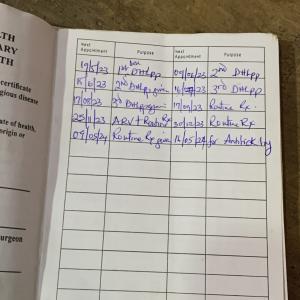 LTH
ARY
TH
certificate
gious disease
ate of health,
origin or
urgeon
Next Appointment Purpose Next Appointment Purpose
19/5/23 1st DHLPP 09/06/23 2nd DHLPP
2nd DHLPP given 3rd DHLPP
17/09/23 Routine Rx.
25/11/23 ARV + Routine Rx 30/12/23 Routine Rx
09/05/24 Routine Rx given 16/05/24 for Antitick Inj